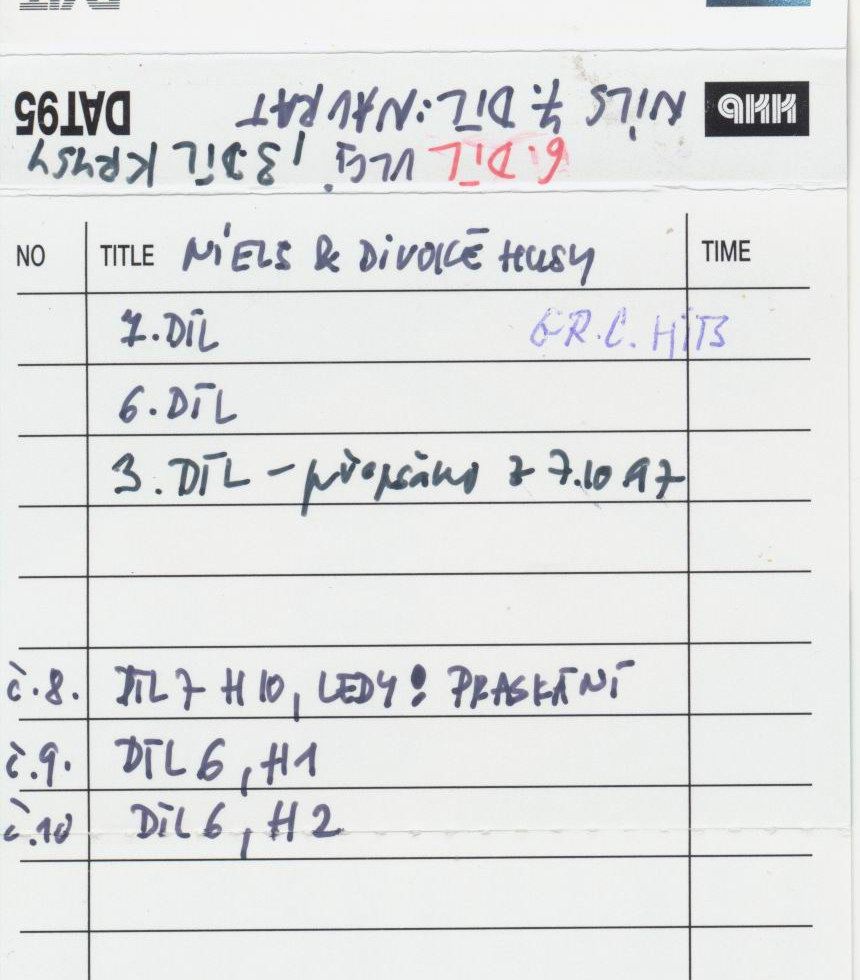 hhb NILS 7. DÍL: NÁVRAT DAT95
6. DÍL VLCI, 3 DÍL KRYSY
NO TITLE NIELS & DIVOKÉ HUSY TIME
7. DÍL G.R.C. HITS
6. DÍL
3. DÍL – přepsáno z 7.10 97
č.8. DÍL 7 H10, LEDY! PRASKÁNÍ
č.9. DÍL 6, H1
č.10 DÍL 6, H2